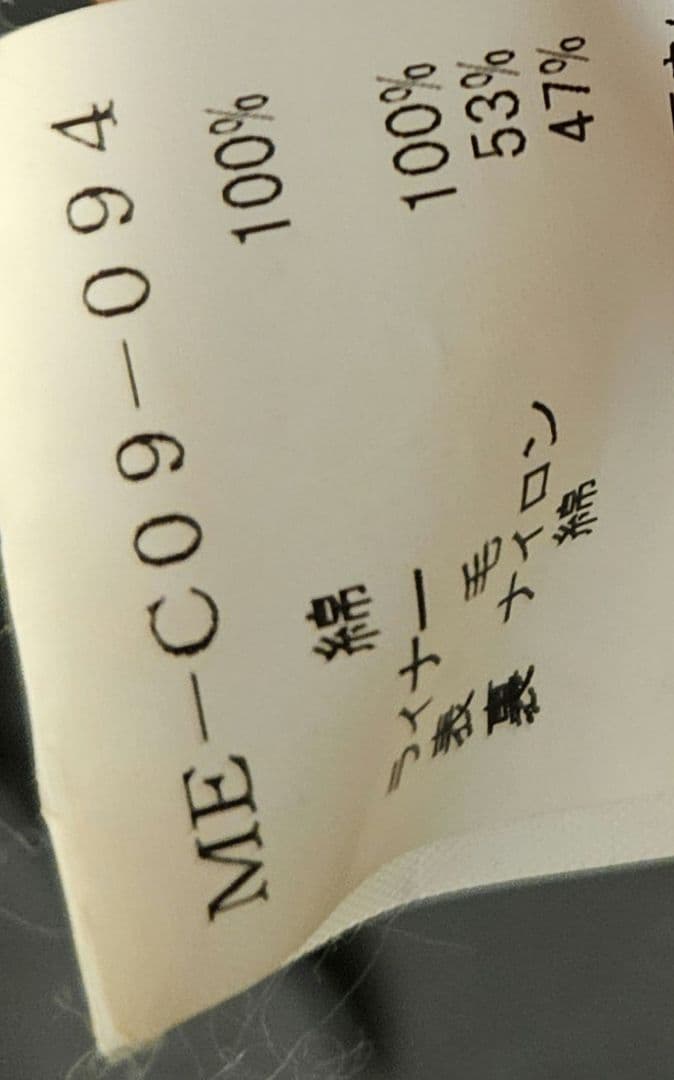 ME-C09-094
綿 100%
ライナー
表 毛 100%
裏 ナイロン 53%
綿 47%